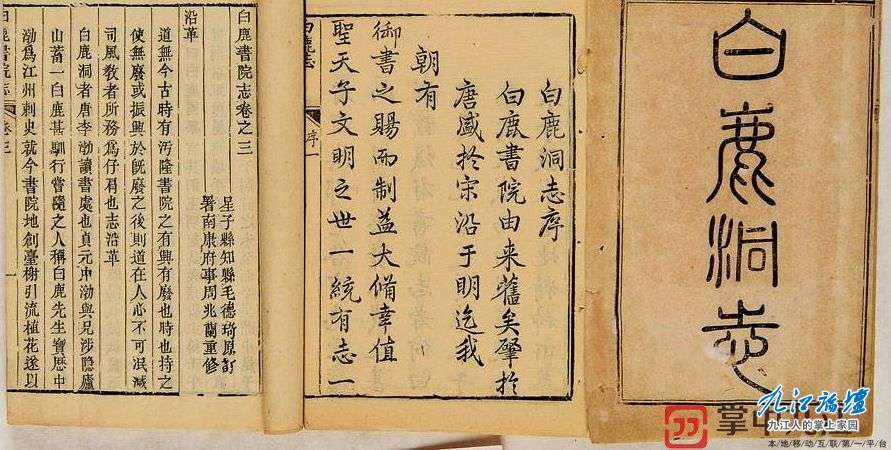 白鹿洞志
白鹿洞志序
白鹿書院由来舊矣肇扵
唐盛扵宋沿于明迄我
朝有
御書之賜而制益大備幸值
聖天子文明之世一統有志一
白鹿志
序一
白鹿書院志卷之三
星子縣知縣毛德琦原訂
署南康府事周兆蘭重修
沿革
道無今古時有污隆書院之有興有廢也時也持之
使無廢或振興於旣廢之後則道在人心不可泯滅
司風敎者所務爲仔肩也志沿革
白鹿洞者唐李渤讀書處也貞元中渤與兄涉隱廬
山蓄一白鹿甚馴行嘗隨之人稱白鹿先生寶歷中
渤爲江州刺史就今書院地創臺榭引流植花遂以
白鹿書院志
卷三
一
掌中九江
九江論壇
九江人的掌上家园
本/地/移/动/互/联/第/一/平/台